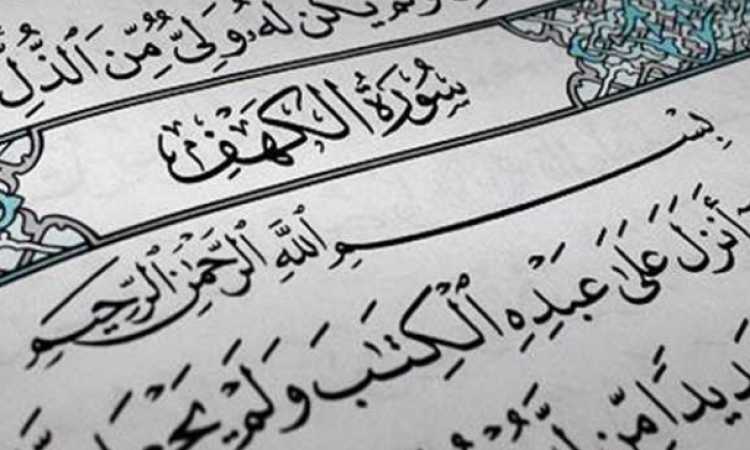 يَكُن لَّهُۥ وَلِىٌّ مِّنَ ٱلذُّلِّ
سُورَةُ الكَهْفِ
بِسْمِ اللَّهِ الرَّحْمَٰنِ الرَّحِيمِ
أَنزَلَ عَلَىٰ عَبْدِهِ ٱلْكِتَٰبَ وَلَمْ يَجْعَل
مِّن